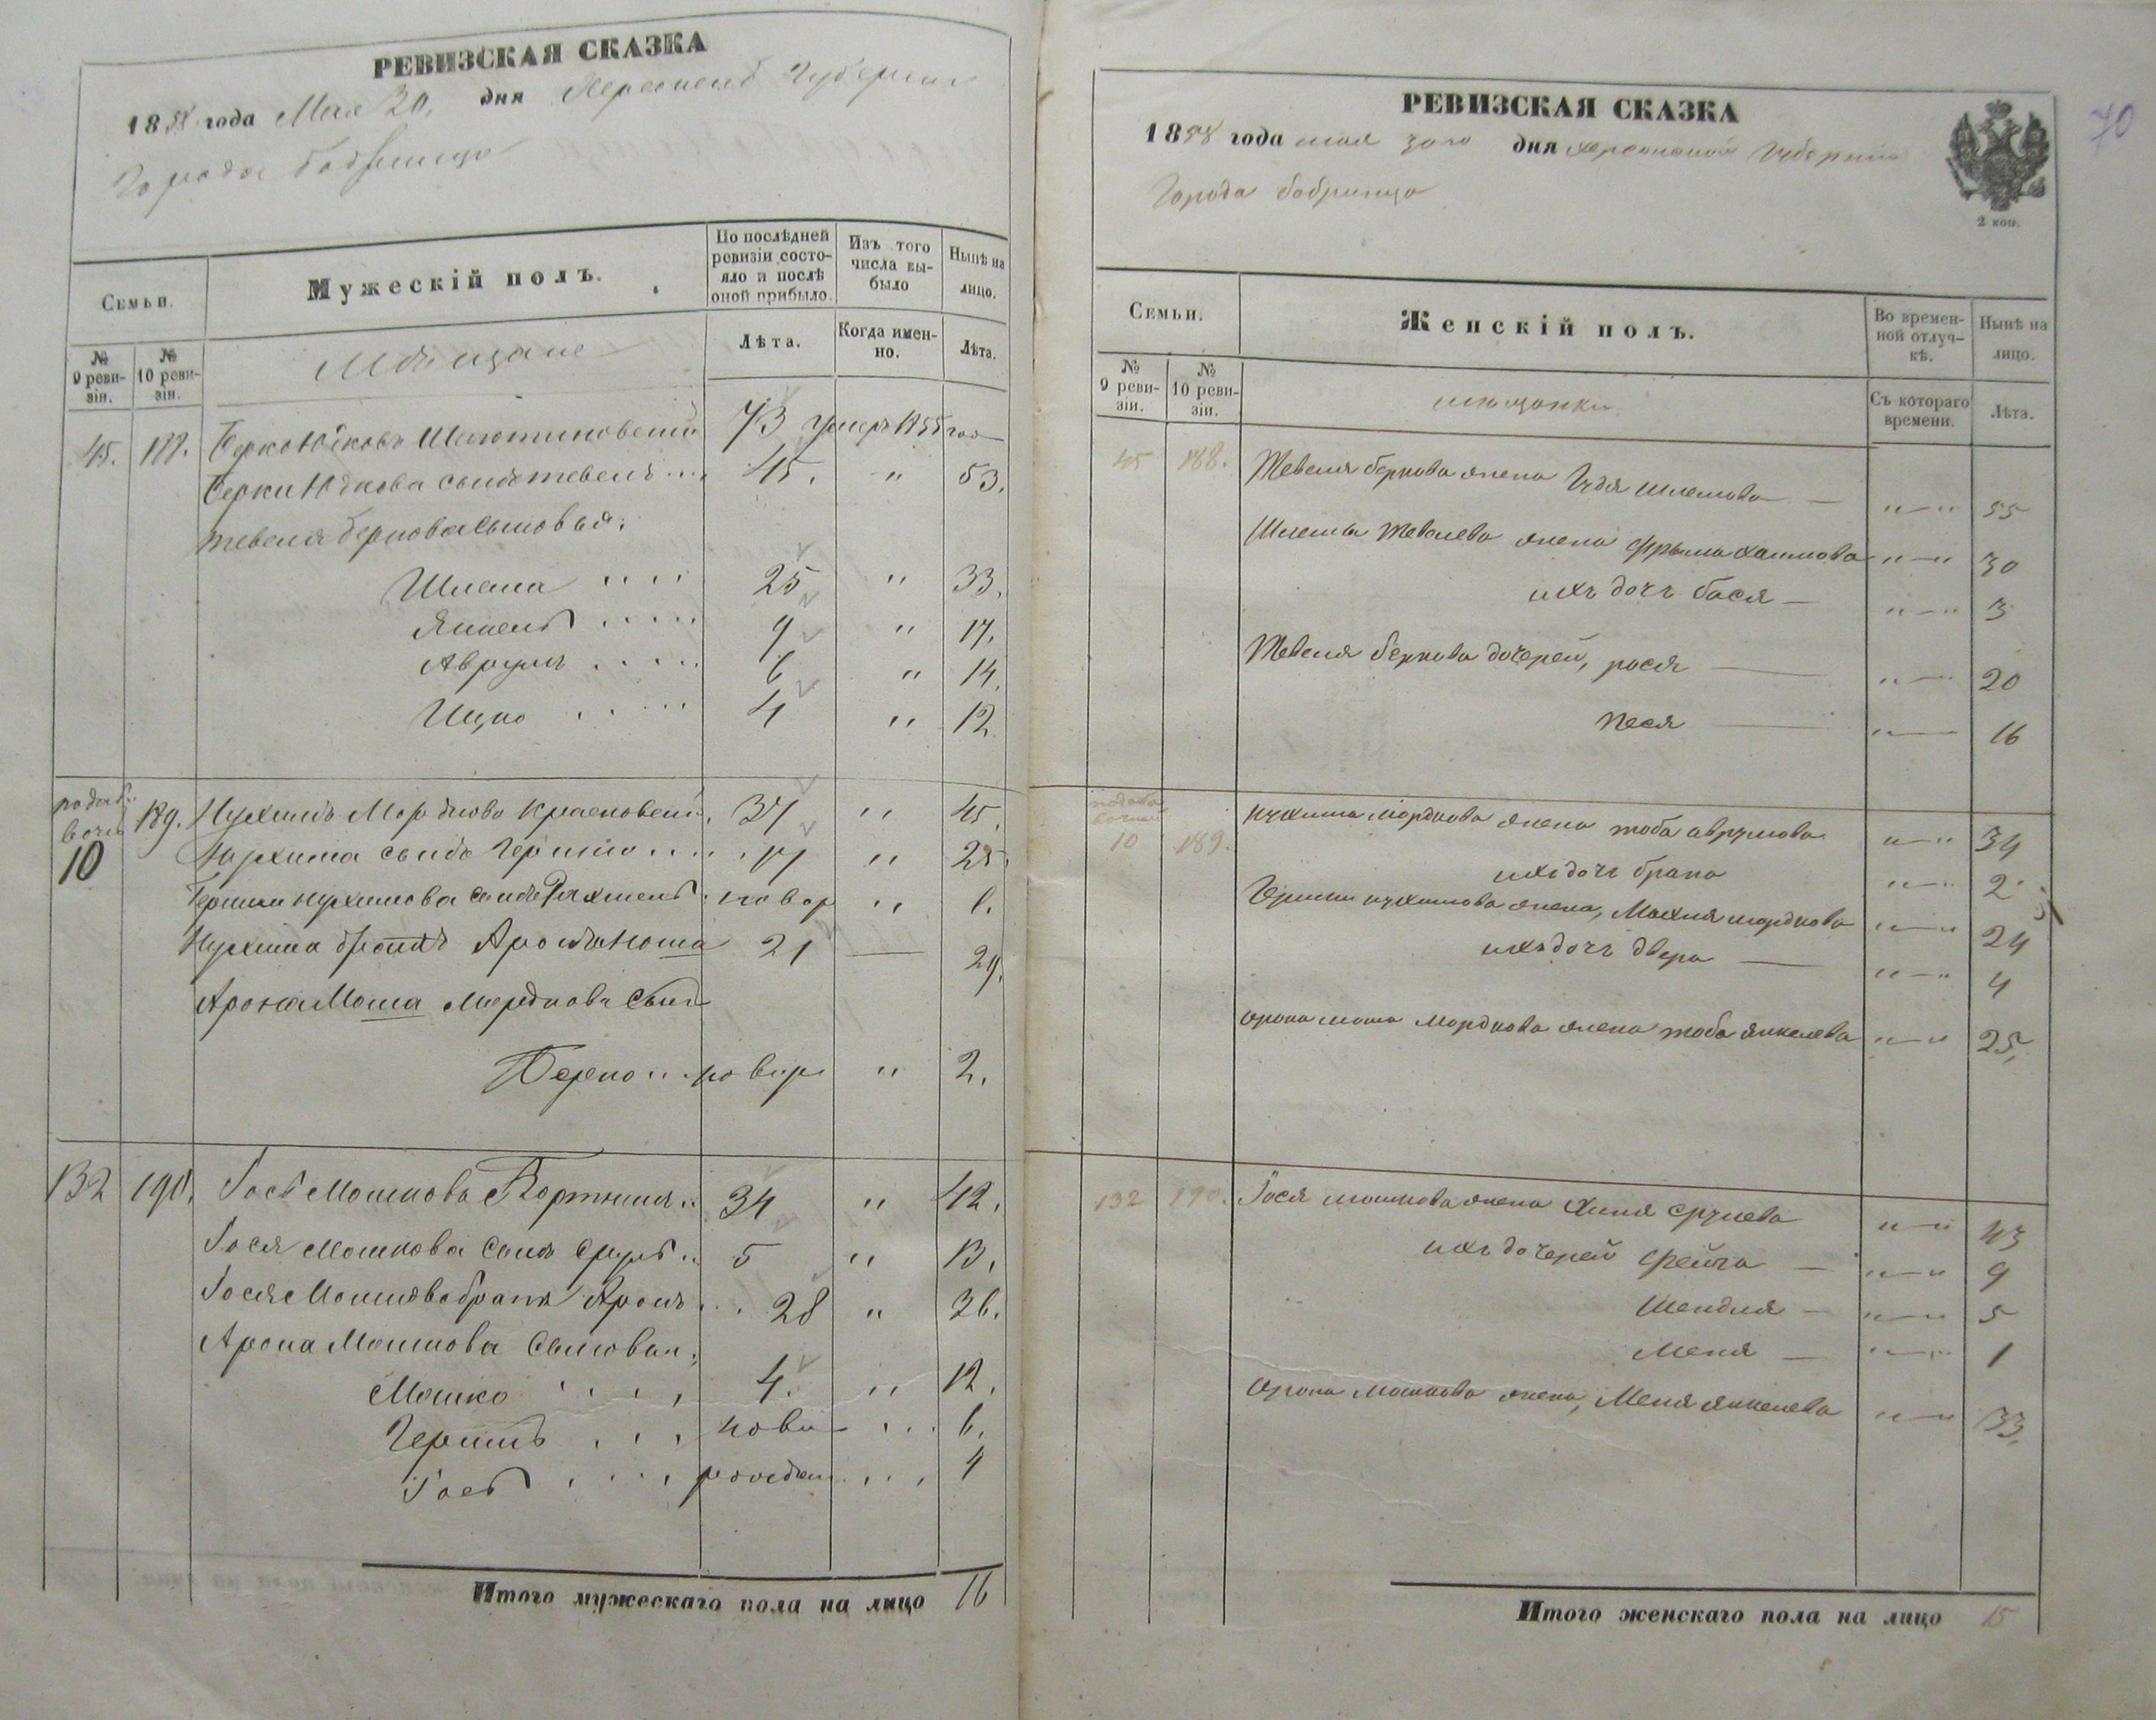 РЕВИЗСКАЯ СКАЗКА
1858 года Мая 30. дня Херсонской Губернии
Города Бобринца
Семьи.
Мужескій полъ.
По послѣдней ревизіи состояло и послѣ оной прибыло.
Изъ того числа выбыло
Нынѣ на лицо.
№ 9 ревизіи.
№ 10 ревизіи.
Мѣщане
Лѣта.
Когда именно.
Лѣта.
45. 188. Берко Юдковъ 73 умеръ 1855 год
Берки Юдкова сынъ Тевель 45. " 53.
Тевеля Беркова сыновья:
Шлема 25 " 33.
Янкель 9 " 17.
Аврумъ 6 " 14.
Ицко 4 " 12
10 189. Нухимъ Мордковъ 37 " 45.
Нухима сынъ Гершко 17 " 25.
Гершки Нухимова сынъ новор "
Нухима братъ Аронъ Моша 21 — 29.
Арона Моша Мордкова сынъ
Берко новор " 2.
132 190. Гось Мошкова 34 " 42.
Гося Мошкова сынъ Сруль 5 " 13.
Гося Мошкова братъ Аронъ 28 " 36.
Арона Мошкова сыновья:
Мошко 4. " 12.
Гершъ ново 6.
Гось рожден 4
Итого мужескаго пола на лицо 16
70
РЕВИЗСКАЯ СКАЗКА
1858 года мая 30го дня Херсонской Губернии
Города Бобринца
2 коп.
Семьи.
Женскій полъ.
Во временной отлучкѣ.
Нынѣ на лицо.
№ 9 ревизіи.
№ 10 ревизіи.
мещанки
Съ котораго времени.
Лѣта.
45 188. Тевеля Беркова жена Гудя Шлемова — "—" 55
Шлемы Тевелева жена Фрыма Хаимова "—" 30
ихъ дочь Бася — "—" 3
Тевеля Беркова дочерей, Рося — "—" 20
Песя — "—" 16
10 189. Нухима Мордкова жена Тоба Аврумова "—" 34
ихъ дочь Брана "—" 2
Гершки Нухимова жена, Махля Мордкова "—" 24
ихъ дочь Двера — "—" 4
Арона Моша Мордкова жена Тоба Янкелева "—" 25,
132 190. Гося Мошкова жена Хиня Срулева "—" 43
ихъ дочерей Фейга — "—" 9
Шендля — "—" 5
Меня — "—" 1
Арона Мошкова жена, Меня Янкелева "—" 33.
Итого женскаго пола на лицо 15